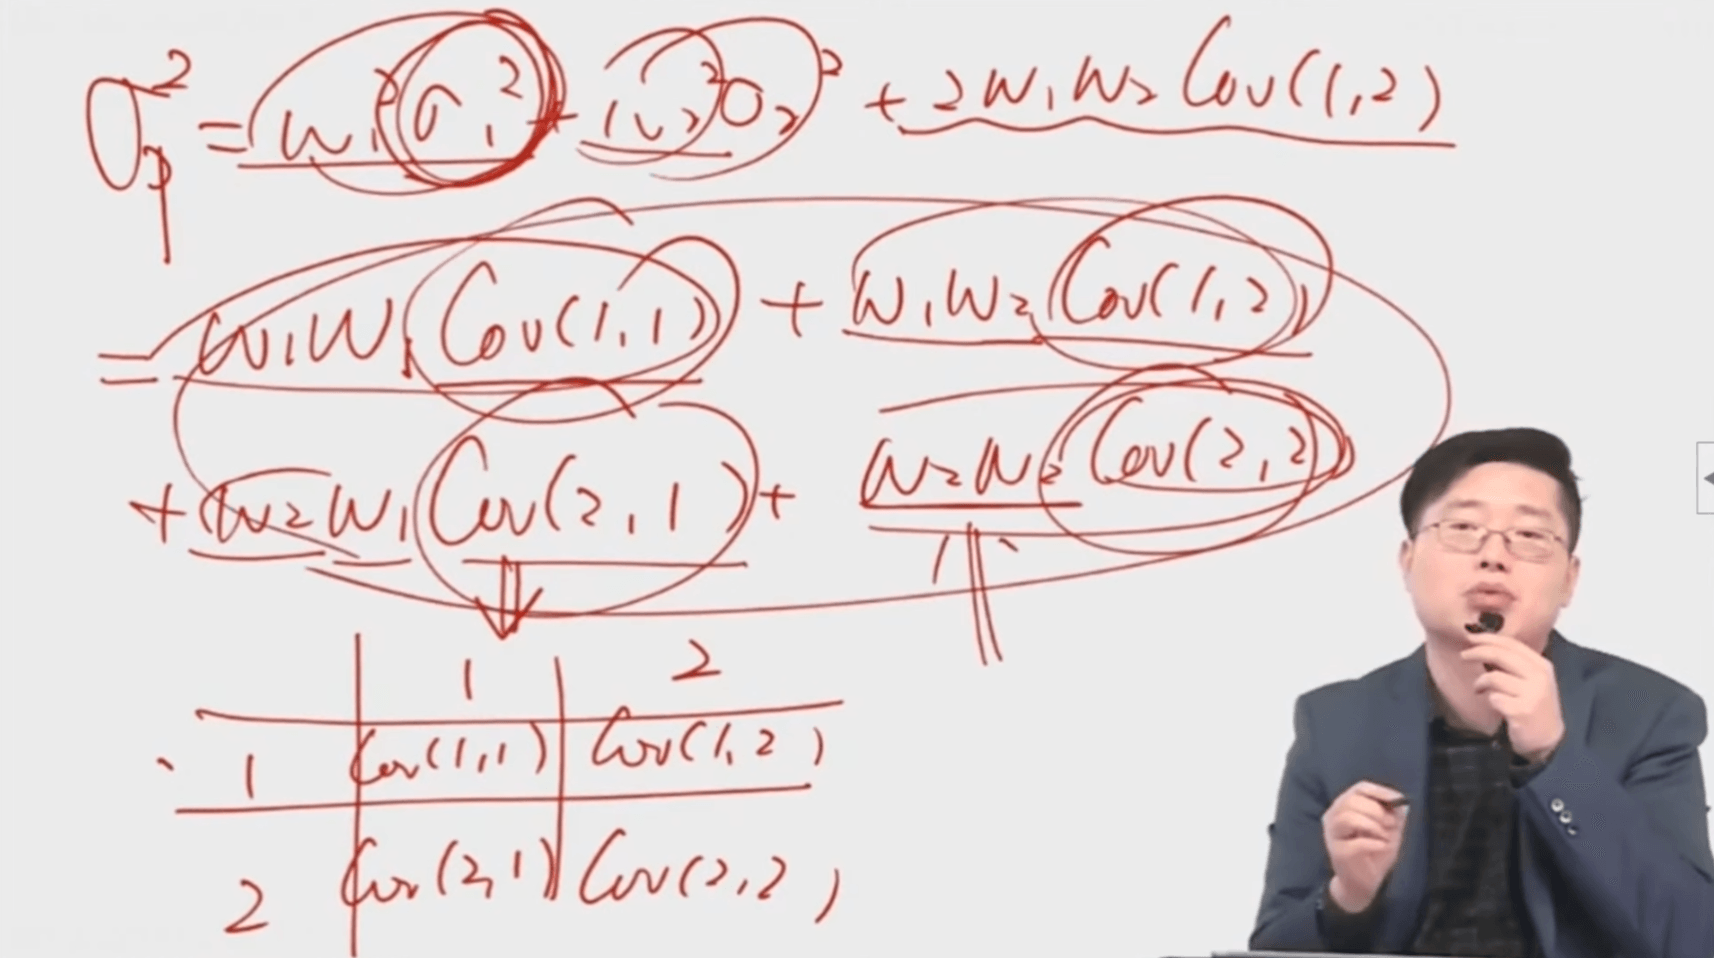 σp² = w₁²σ₁² + w₂²σ₂² + 2w₁w₂Cov(1,2)
= w₁w₁Cov(1,1) + w₁w₂Cov(1,2)
+ w₂w₁Cov(2,1) + w₂w₂Cov(2,2)
1 2
1 Cov(1,1) Cov(1,2)
2 Cov(2,1) Cov(2,2)